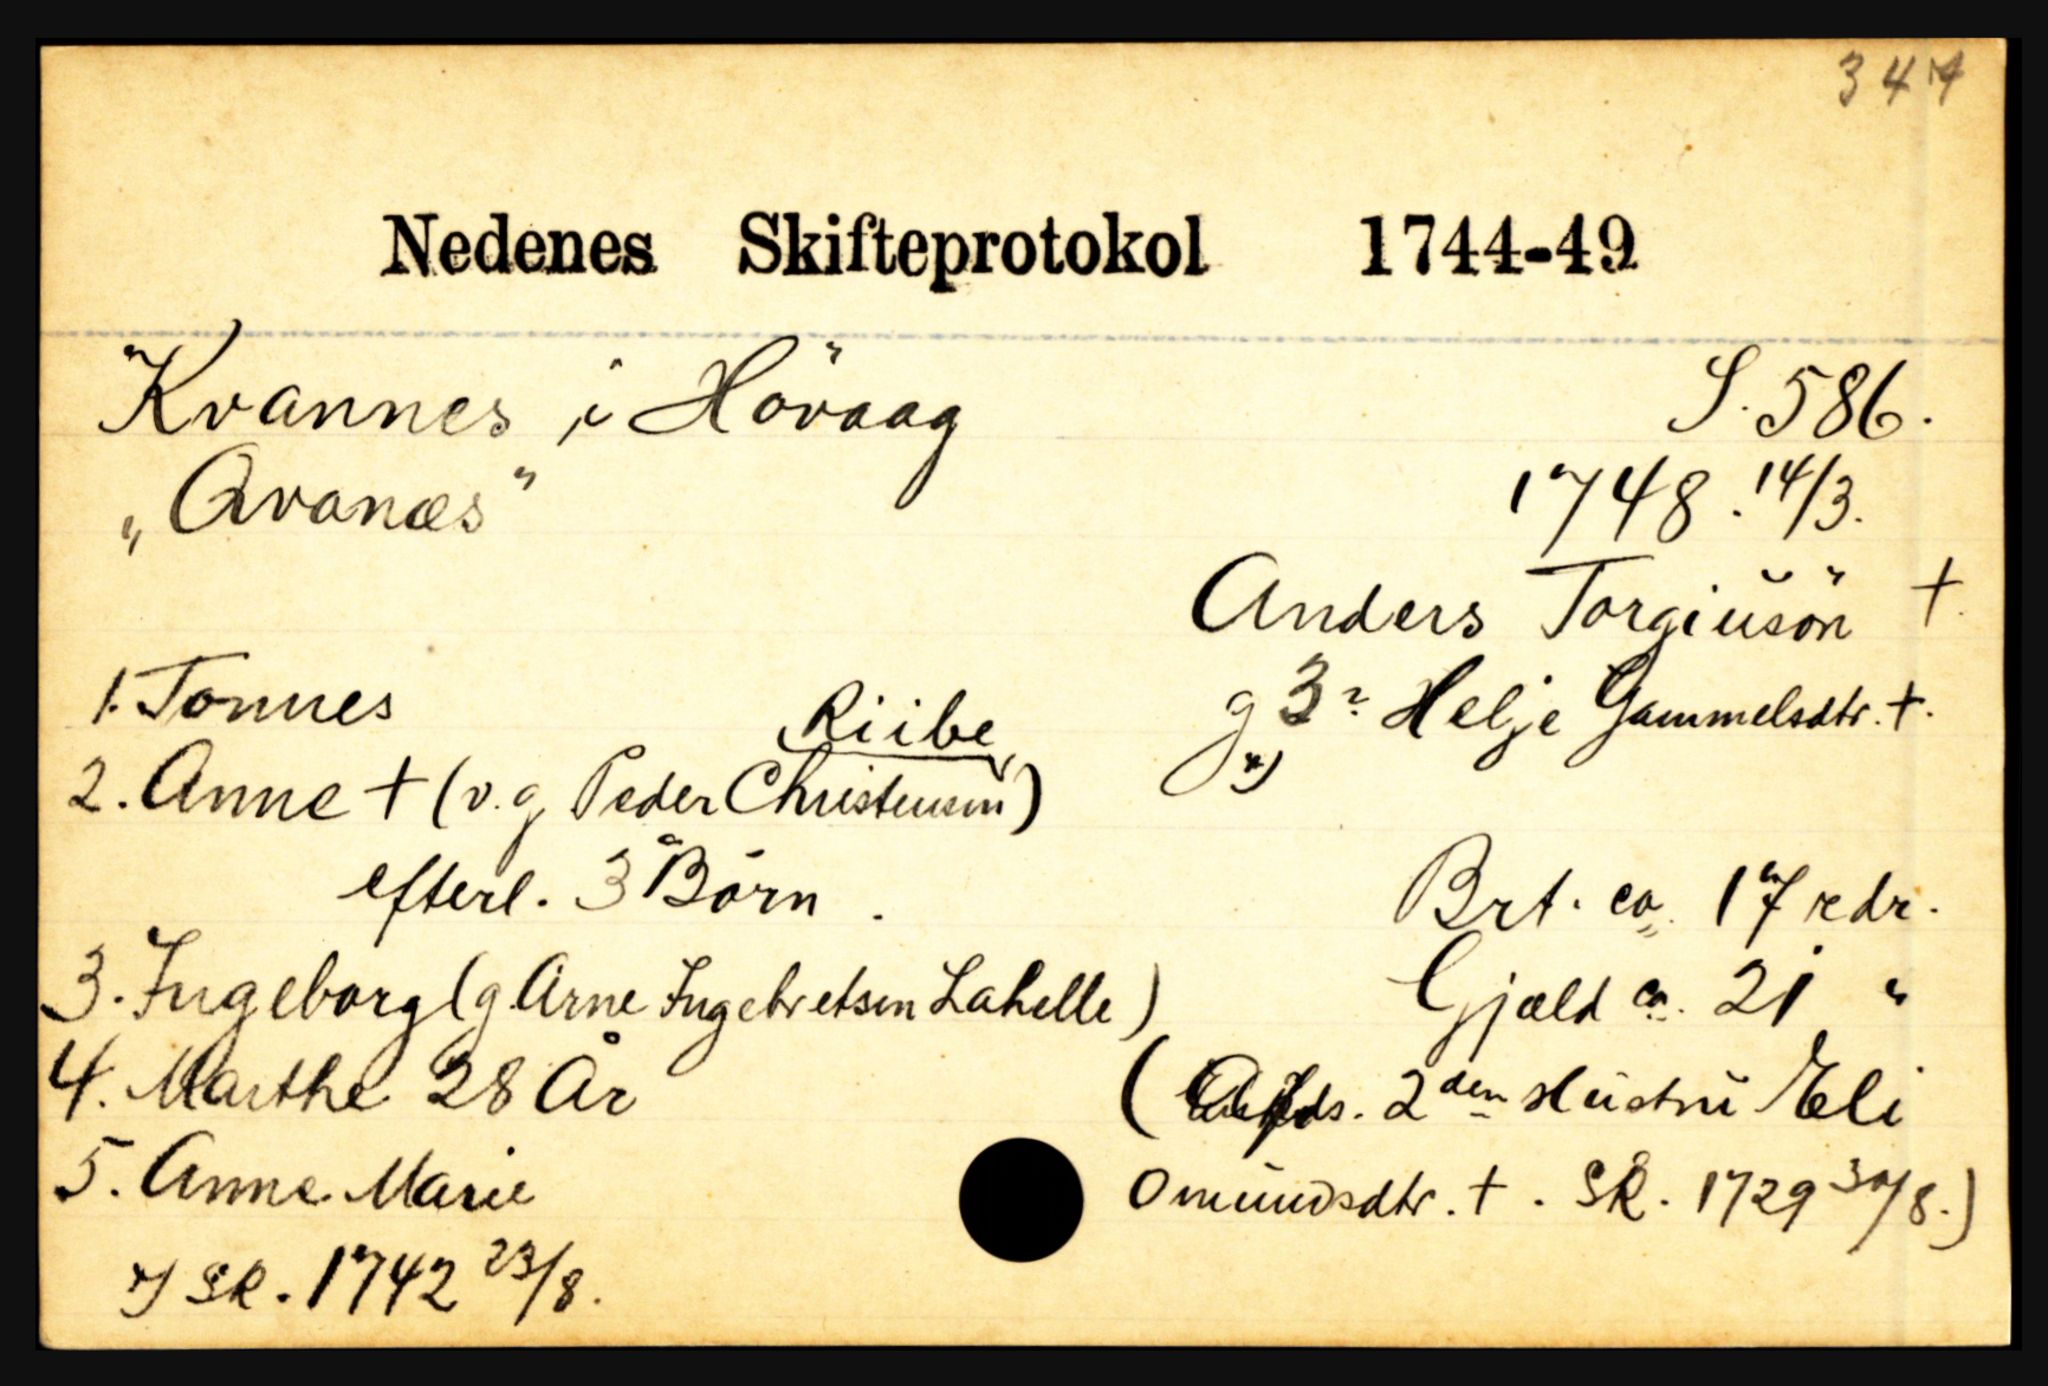 344
Nedenes Skifteprotokol 1744-49
Kvannes i Hövaag S. 586.
"Qvanæs" 1748. 14/3.
Anders Torgiusön +.
1. Tønnes g 3? Helje Gammelsdtr. +.
Riibe x)
2. Anne + (v. g Peder Christensen)
efterl. 3 Börn. Brt. ca. 17 rdr.
3. Ingeborg (g. Arne Ingebretsen Lahelle) Gjæld ca. 21 "
4. Marthe 28 År ( 2den Hustru Eli
5. Anne Marie Omundsdtr. +. Sk. 1729 30/8.)
x) Sk. 1742 23/8.